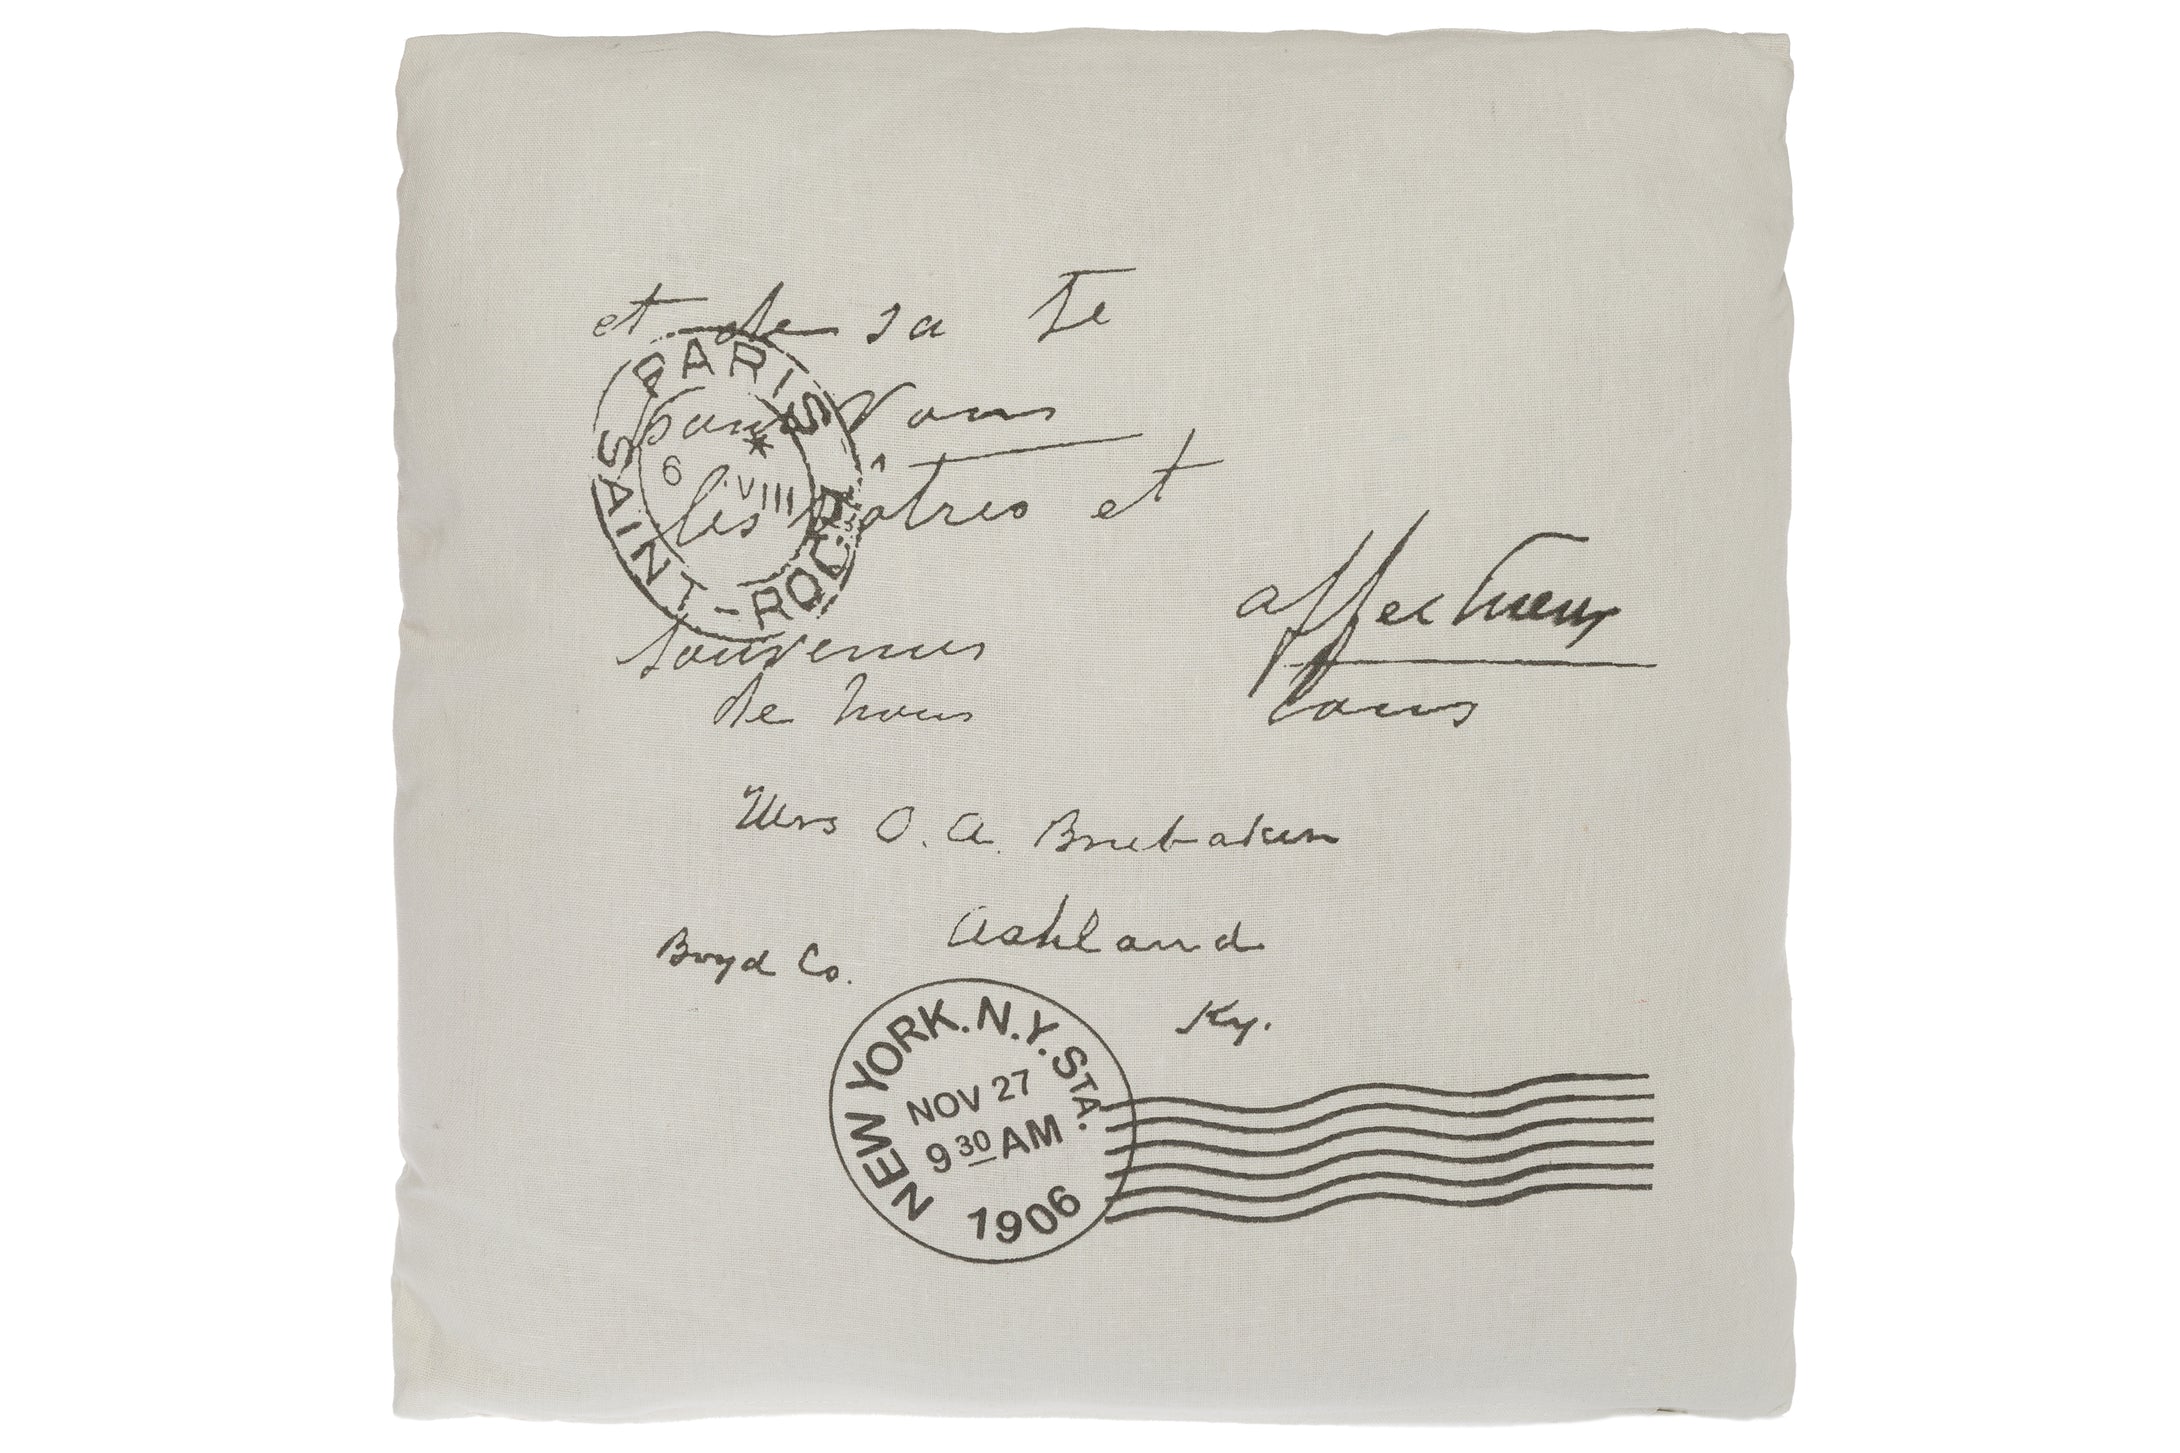 et de sa Te
PARIS
pour Vous
* 
6 VIII
les vôtres et
SAINT-ROCH
affectueux
souvenus
de nous
tous
Mrs O. A. Brubaker
Ashland
Boyd Co.
Ky.
NEW YORK. N.Y. STA.
NOV 27
9 30 AM
1906